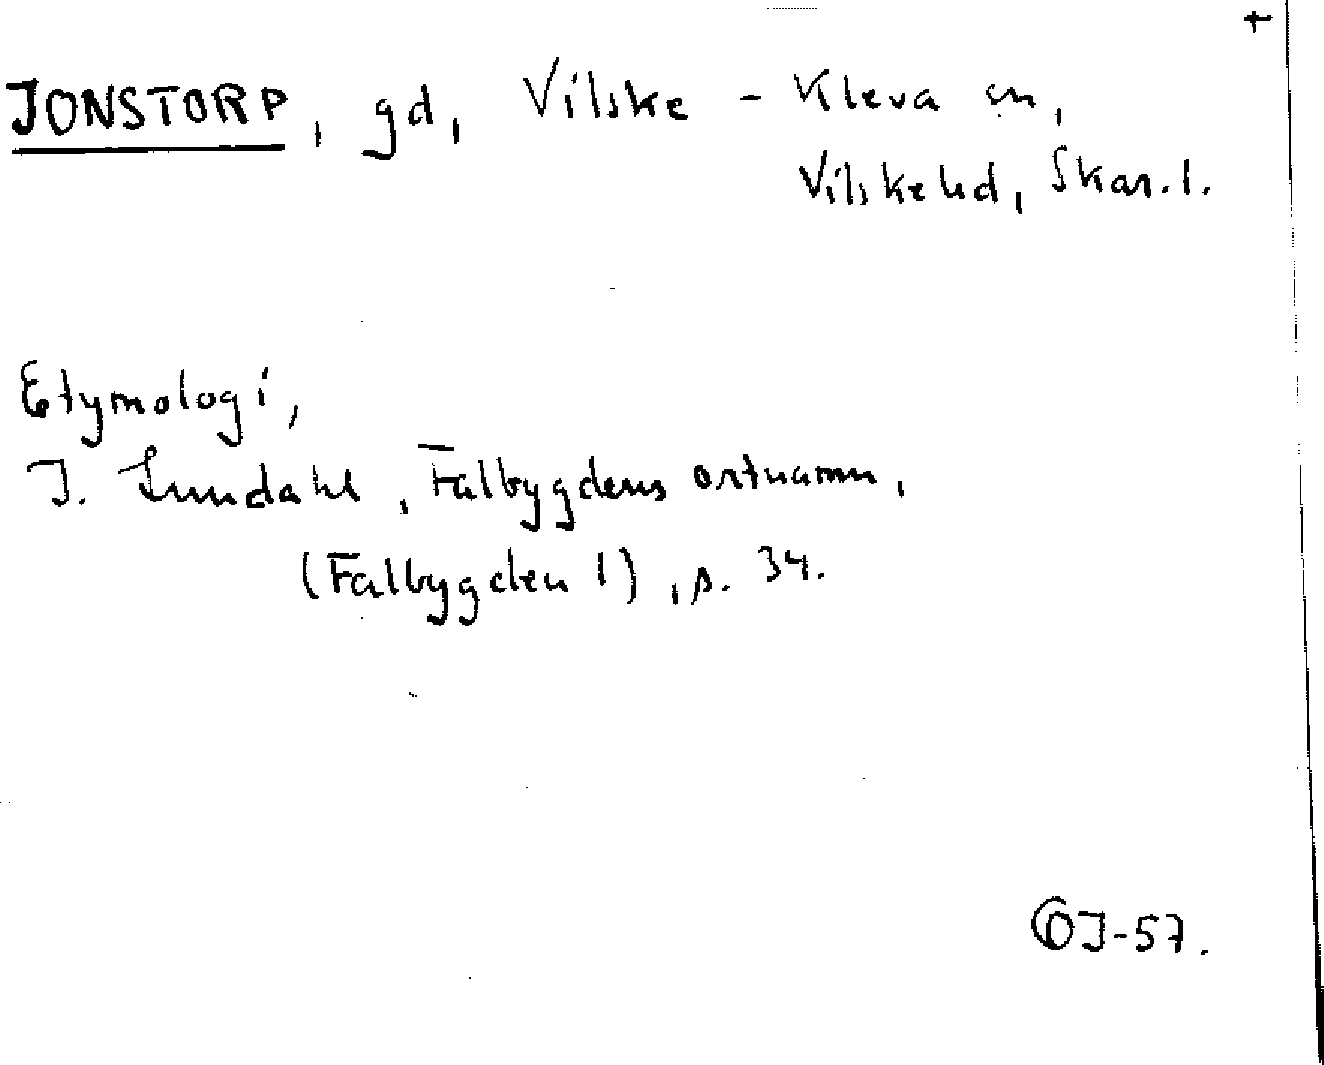 +
JONSTORP, gd, Vilske-Kleva sn,
Vilske hd, Skar. l.
Etymologi,
I. Lundahl, Falbygdens ortnamn,
(Falbygden 1), s. 34.
OJ-57.